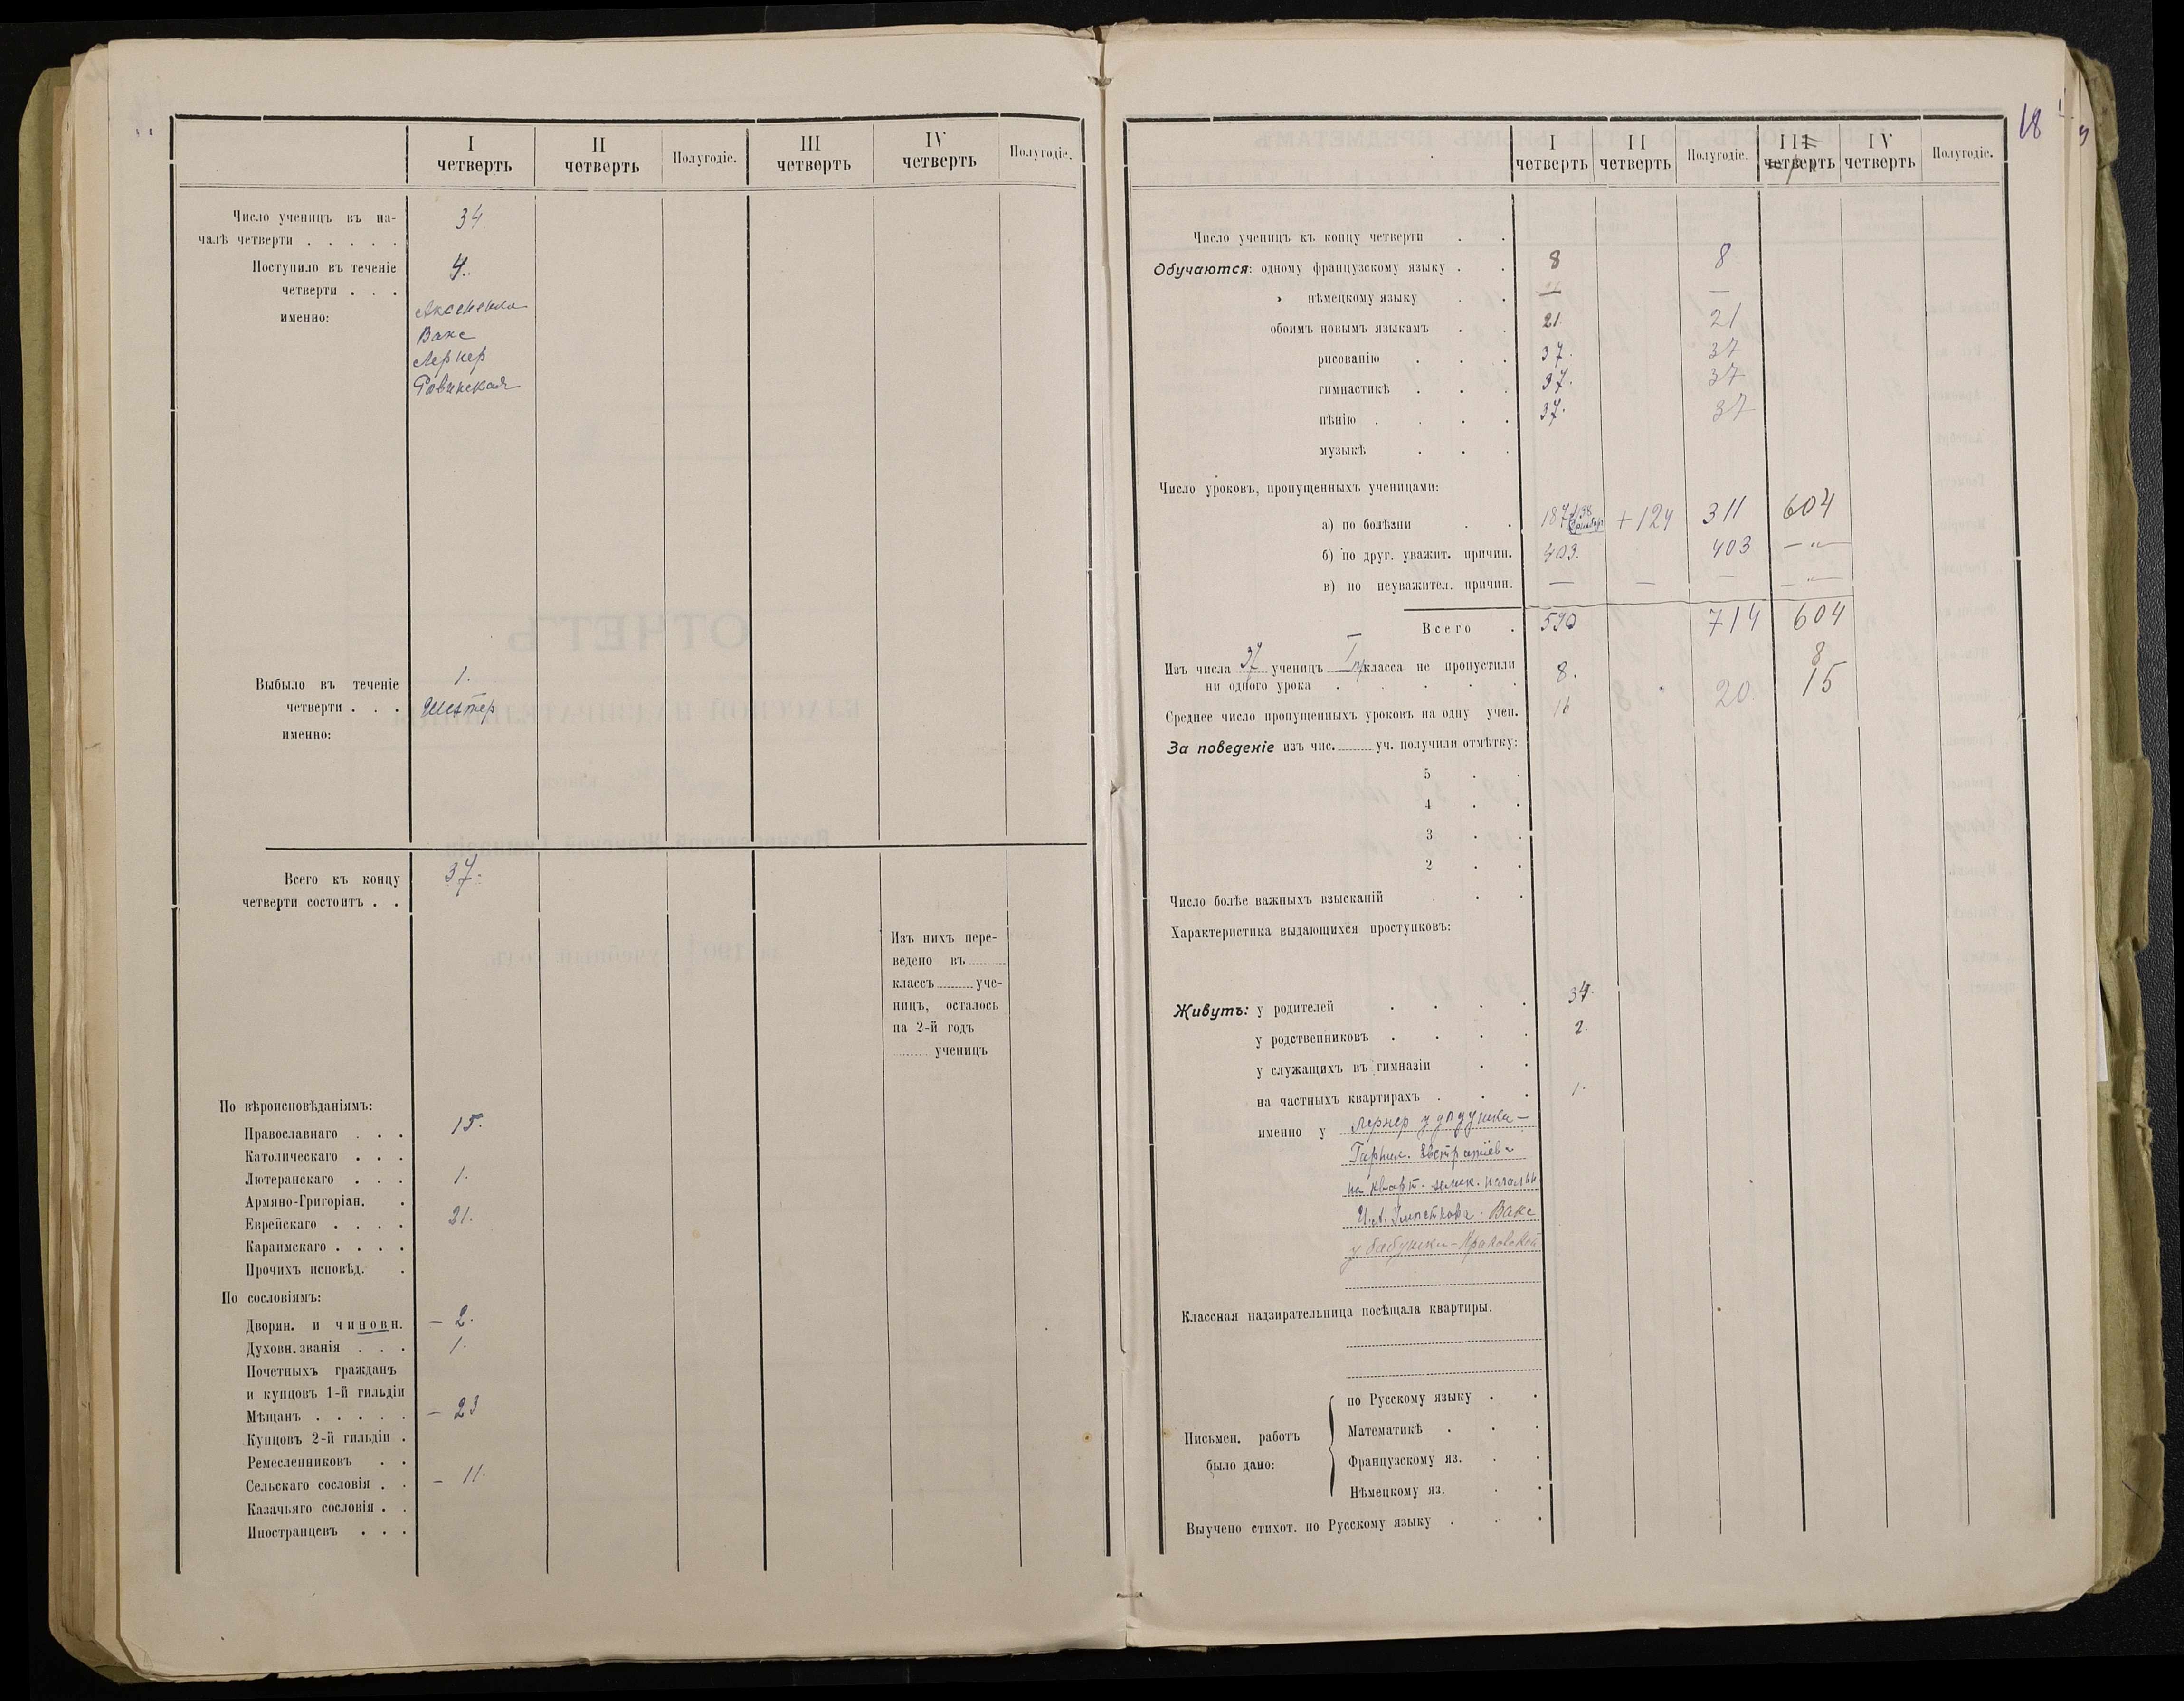 I четверть
II четверть
Полугодіе.
III четверть
IV четверть
Полугодіе.
Число ученицъ въ на-
чалѣ четверти . . . . . 34
Поступило въ теченіе 4.
четверти . . .
именно:
Вакс
Лернер
Равинская
Выбыло въ теченіе 1.
четверти . . .
именно:
Всего къ концу 37.
четверти состоитъ . .
Изъ нихъ пере-
ведено въ
классъ уче-
ницъ, осталось
на 2-й годъ
ученицъ
По вѣроисповѣданіямъ:
Православнаго . . . 15.
Католическаго . . .
Лютеранскаго . . . 1.
Армяно-Григоріан. .
Еврейскаго . . . . 21.
Караимскаго . . . .
Прочихъ исповѣд. .
По сословіямъ:
Дворян. и чиновн. – 2.
Духовн. званія . . . 1.
Почетныхъ гражданъ
и купцовъ 1-й гильдіи
Мѣщанъ . . . . . – 23
Купцовъ 2-й гильдіи .
Ремесленниковъ . .
Сельскаго сословія . . – 11.
Казачьяго сословія . .
Иностранцевъ . . .
18
I четверть
II четверть
Полугодіе.
III четверть
IV четверть
Полугодіе.
Число ученицъ къ концу четверти . .
Обучаются: одному французскому языку . . 8 8
» нѣмецкому языку . . — —
обоимъ новымъ языкамъ . . 21. 21
рисованію . . . 37. 37
гимнастикѣ . . . 37. 37
пѣнію . . . . 37. 37
музыкѣ . . .
Число уроковъ, пропущенныхъ ученицами:
а) по болѣзни . . 187 +124 311 604
б) по друг. уважит. причин. 403. 403 — „ —
в) по неуважител. причин. — — — — „ —
Всего . 590 714 604
Изъ числа 37 ученицъ I класса не пропустили 8. 8
ни одного урока . . . . .
Среднее число пропущенныхъ уроковъ на одну учен. 16 20. 15
За поведеніе изъ чис. уч. получили отмѣтку:
5 . .
4 . .
3 . .
2 . .
Число болѣе важныхъ взысканій . . .
Характеристика выдающихся проступковъ:
Живутъ: у родителей . . . . 34.
у родственниковъ . . . . 2.
у служащихъ въ гимназіи . .
на частныхъ квартирахъ . . . 1.
именно у Лернер у дѣдушки –
на кварт. земск. начальн
Вакс
у бабушки –
Классная надзирательница посѣщала квартиры.
Письмен. работъ
было дано:
по Русскому языку . .
Математикѣ . . .
Французскому яз. . .
Нѣмецкому яз. . .
Выучено стихот. по Русскому языку . . .